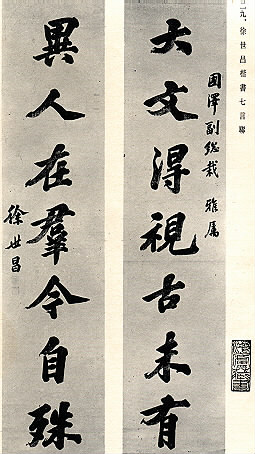 九、徐世昌楷書七言聯
副総裁 雅屬
大文得視古未有
異人在羣今自殊
徐世昌